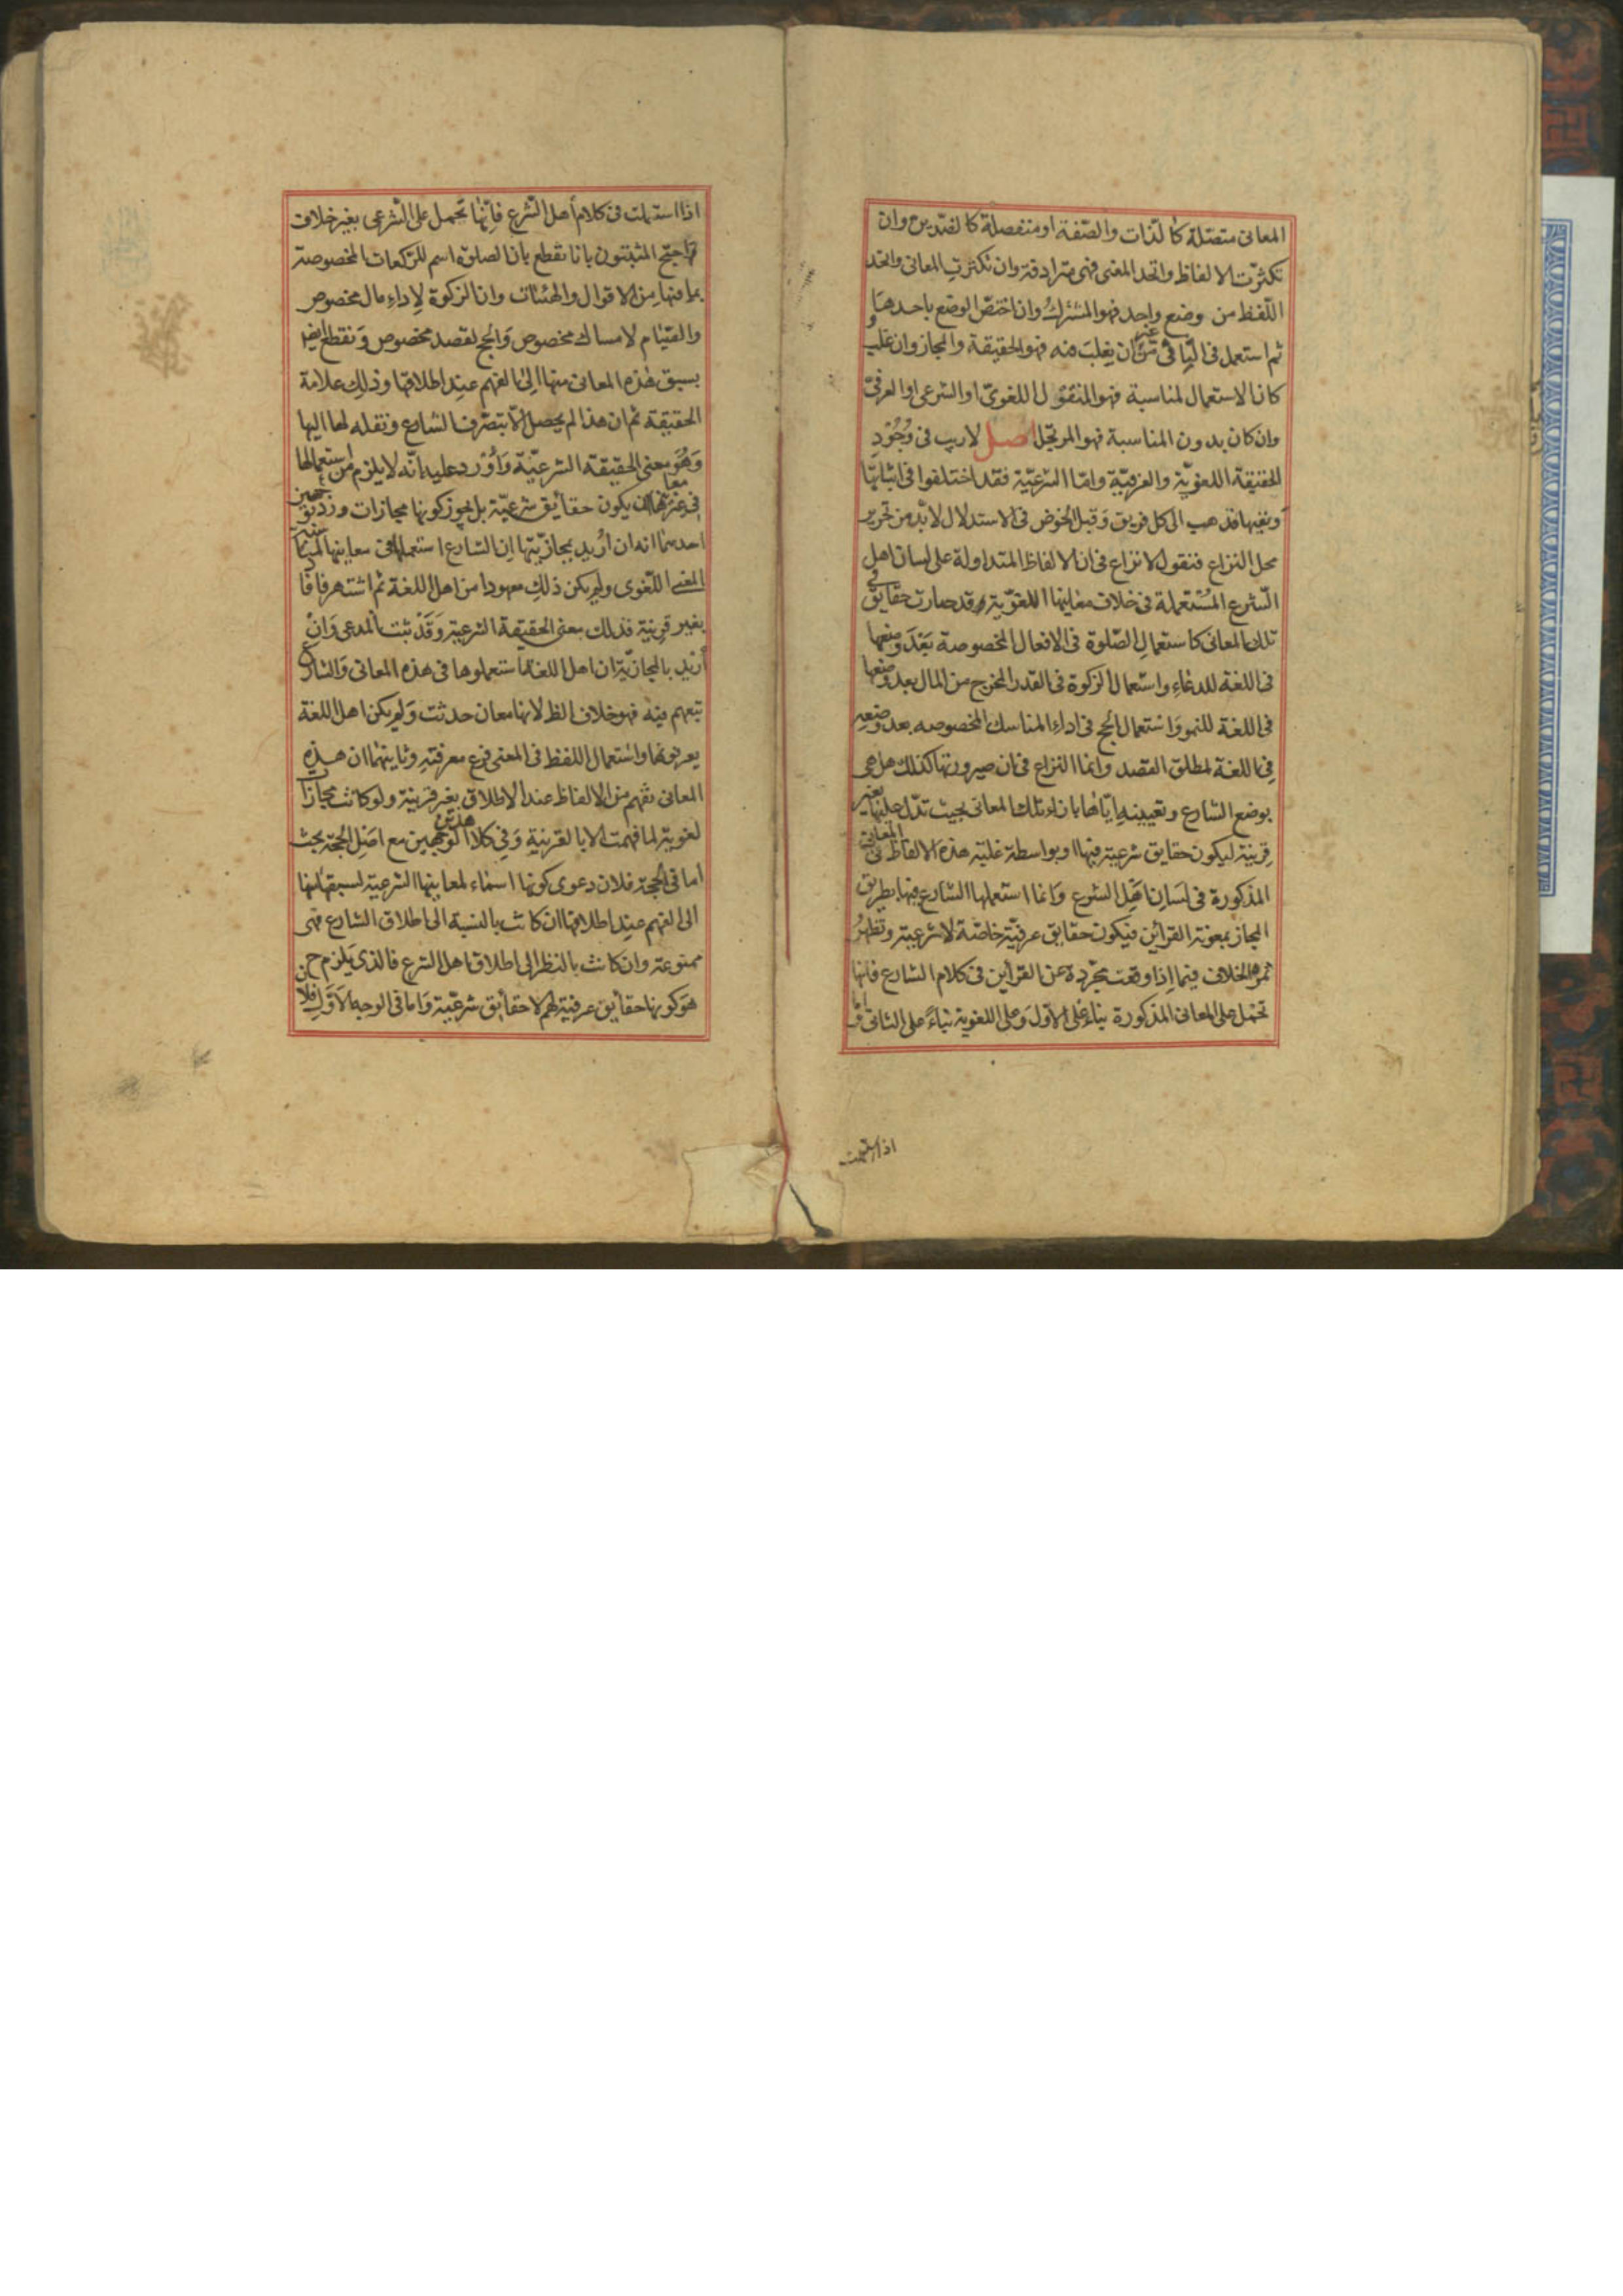 المعانى متصلة كالذات والصفة او منفصلة كالضدين وان
تكثرت الالفاظ واتحد المعنى فهى مترادفة وان تكثرت المعانى واتحد
اللفظ من وضع واحد فهو المشترك وان اختص الوضع باحدها
ثم استعمل فى الباقى من غير ان يغلب فيه فهو الحقيقة والمجاز وان غلب و
كان الاستعمال لمناسبة فهو المنقول اللغوى او الشرعى او العرفى
وان كان بدون المناسبة فهو المرتجل اصل لاريب فى وجود
الحقيقة اللغوية والعرفية واما الشرعية فقد اختلفوا فى اثباتها
ونفيها فذهب الى كل فريق وقبل الخوض فى الاستدلال لابد من تحرير
محل النزاع فنقول لا نزاع فى ان الالفاظ المتداولة على لسان اهل
الشرع المستعملة فى خلاف معانيها اللغوية قد صارت حقايق فى
تلك المعانى كاستعمال الصلوة فى الافعال المخصوصة بعد وضعها
فى اللغة للدعاء واستعمال الزكوة فى القدر المخرج من المال بعد وضعها
فى اللغة للنمو واستعمال الحج فى اداء المناسك المخصوصه بعد وضعه
فى اللغة لمطلق القصد وانما النزاع فى ان صيرورتها كذلك هل هى
بوضع الشارع وتعيينه اياها بازاء تلك المعانى بحيث تدل عليها بغير
قرينة ليكون حقايق شرعية فيها او بواسطة غلبة هذه الالفاظ فى المعانى
المذكورة فى لسان اهل الشرع وانما استعملها الشارع فيها بطريق
المجاز بمعونة القرأين فيكون حقايق عرفية خاصة لا شرعية وتظهر
ثمرة الخلاف فيما اذا وقعت مجردة عن القرأين فى كلام الشارع فانها
تحمل على المعانى المذكورة بناء على الاول وعلى اللغوية بناء على الثانى واما
اذا استعملت
اذا استعملت فى كلام أهل الشرع فانها تحمل على الشرعى بغير خلاف
احتج المثبتون بانا نقطع بان الصلوة اسم للركعات المخصوصة
بما فيها من الاقوال والهيئات وان الزكوة لاداء مال مخصوص
والصيام لامساك مخصوص والحج لقصد مخصوص ونقطع ايضا
بسبق هذه المعانى منها الى الفهم عند اطلاقها وذلك علامة
الحقيقة ثم ان هذا لم يحصل الا بتصرف الشارع ونقله لها اليها
وهو معنى الحقيقة الشرعية واورد عليه انه لا يلزم من استعمالها
فى غير معانيها ان يكون حقأيق شرعية بل يجوز كونها مجازات ورد بوجهين
احدهما انه ان اريد بمجازيتها ان الشارع استعملها فى معانيها لمناسبة
المعنى اللغوى ولم يكن ذلك معهودا من اهل اللغة ثم اشتهر فافاد
بغير قرينة فذلك معنى الحقيقة الشرعية وقد ثبت المدعى وان
أريد بالمجازية ان اهل اللغة استعملوها فى هذه المعانى والشارع
تبعهم فيه فهو خلاف الظ لانها معان حدثت ولم يكن اهل اللغة
يعرفونها واستعمال اللفظ فى المعنى فرع معرفته وثانيهما ان هذه
المعانى تفهم من الالفاظ عند الاطلاق بغير قرينة ولو كانت مجازات
لغوية لما فهمت الا بالقرينة وفى كلا هذين الوجهين مع اصل الحجة بحث
اما فى الحجة فلان دعوى كونها اسماء لمعانيها الشرعية لسبقها منها
الى الفهم عند اطلاقها ان كانت بالنسبة الى اطلاق الشارع فهى
ممنوعة وان كانت بالنظر الى اطلاق اهل الشرع فالذى يلزم ح
هو كونها حقأيق عرفية لهم لا حقأيق شرعية واما فى الوجه الاول فلان